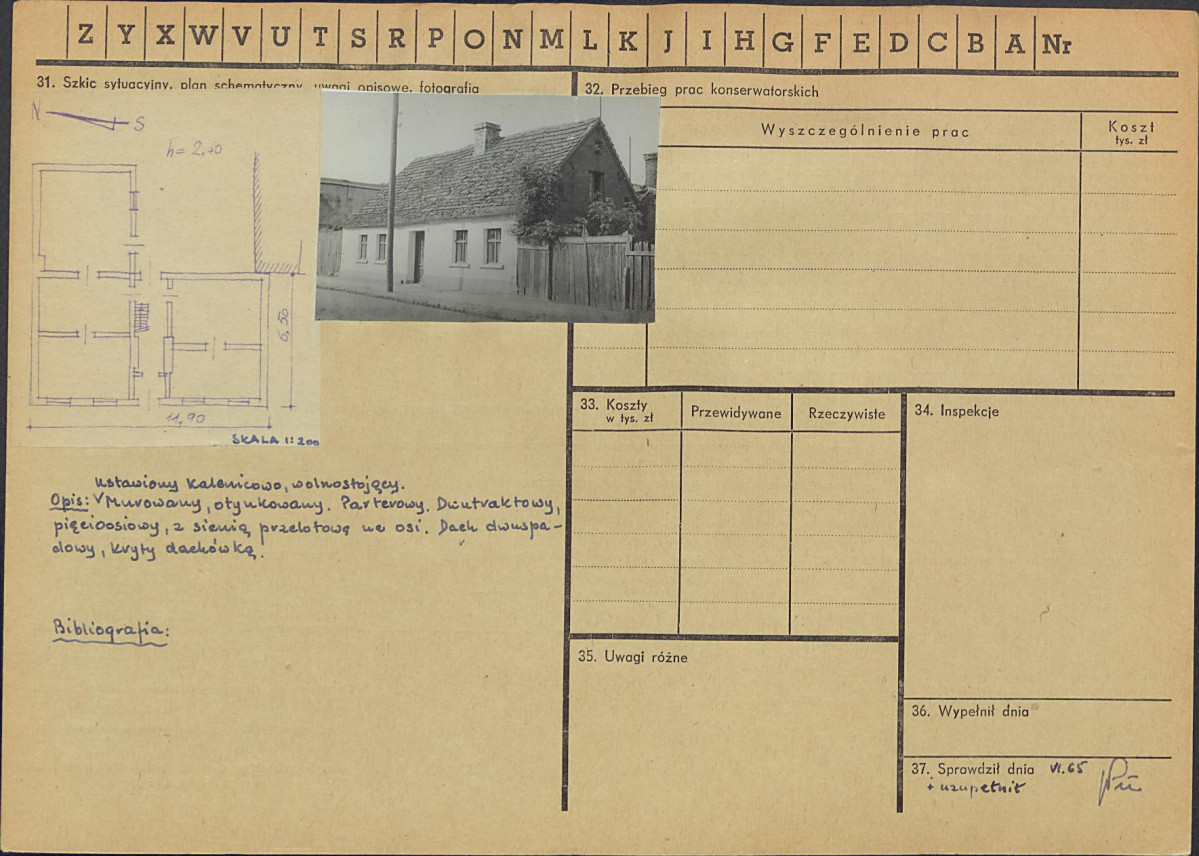 Z Y X W V U T S R P O N M L K J I H G F E D C B A Nr
31. Szkic sytuacyjny, plan schematyczny, uwagi opisowe, fotografia
N S
h = 2,40
6,50
11,90
SKALA 1:200
Ustawiony kalenicowo, wolnostojący.
Opis: V Murowany, otynkowany. Parterowy. Dwutraktowy,
pięcioosiowy, z sienią przelotową na osi. Dach dwuspa-
dowy, kryty dachówką.
Bibliografia:
32. Przebieg prac konserwatorskich
Wyszczególnienie prac
Koszt
tys. zł
33. Koszty
w tys. zł
Przewidywane
Rzeczywiste
34. Inspekcje
35. Uwagi różne
36. Wypełnił dnia
37. Sprawdził dnia VI.65
+ uzupełnił